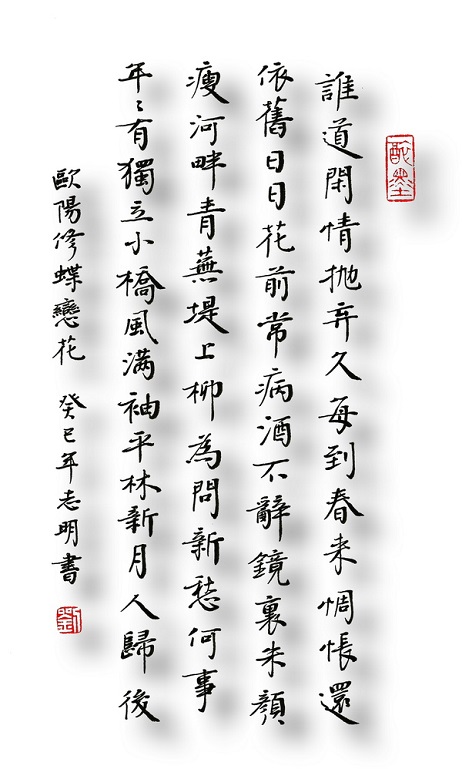 誰道閑情抛弃久每到春来惆悵還
依舊日日花前常病酒不辭鏡裏朱顏
瘦河畔青蕪堤上柳為問新愁何事
年〻有獨立小橋風滿袖平林新月人歸後
歐陽修蝶戀花 癸巳年志明書
劉